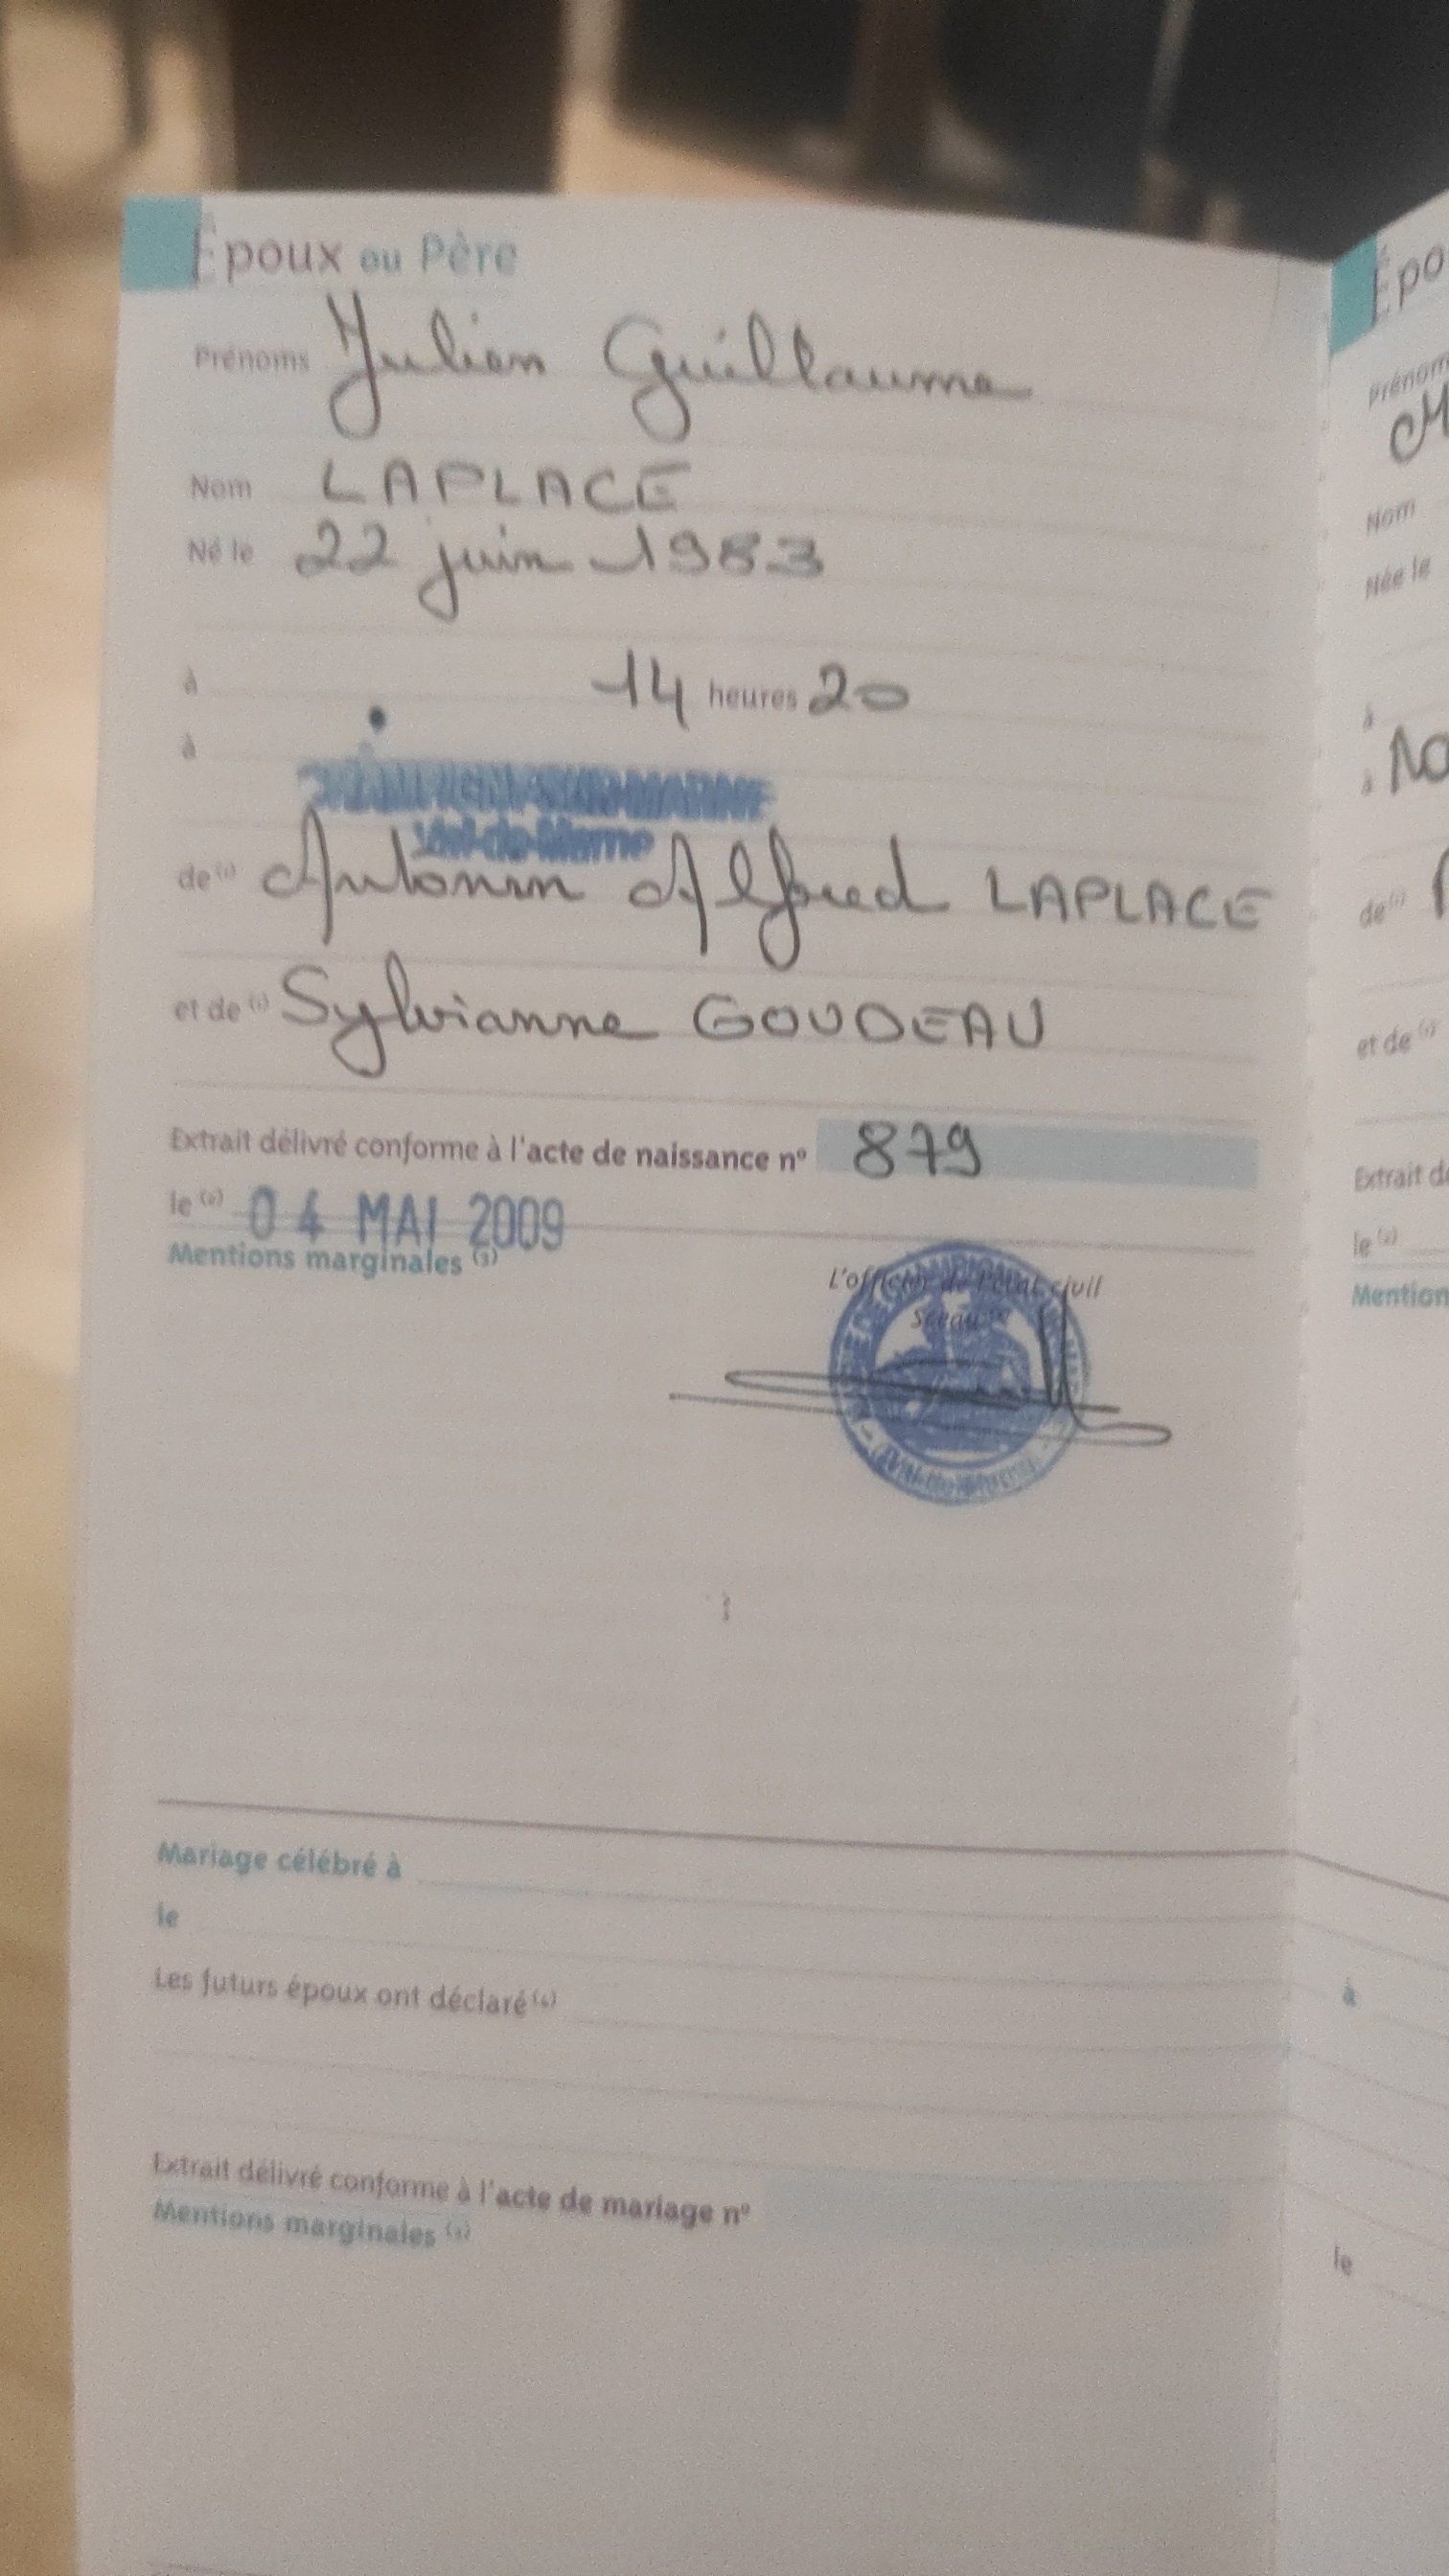 Époux ou Père
Prénoms Julien Guillaume
Nom LAPLACE
Né le 22 juin 1983
à 14 heures 20
à CHAMPIGNY-SUR-MARNE
Val-de-Marne
de (1) Antonin Alfred LAPLACE
et de (1) Sylvianne GOUDEAU
Extrait délivré conforme à l'acte de naissance n° 879
le (2) 04 MAI 2009
Mentions marginales (3)
L'officier de l'état civil
Sceau
Mariage célébré à
le
Les futurs époux ont déclaré (4)
Extrait délivré conforme à l'acte de mariage n°
Mentions marginales (3)
Épo
Prénom
Nom
Née le
à
à No
de (1)
et de (1)
Extrait d
le (2)
Mention
à
le